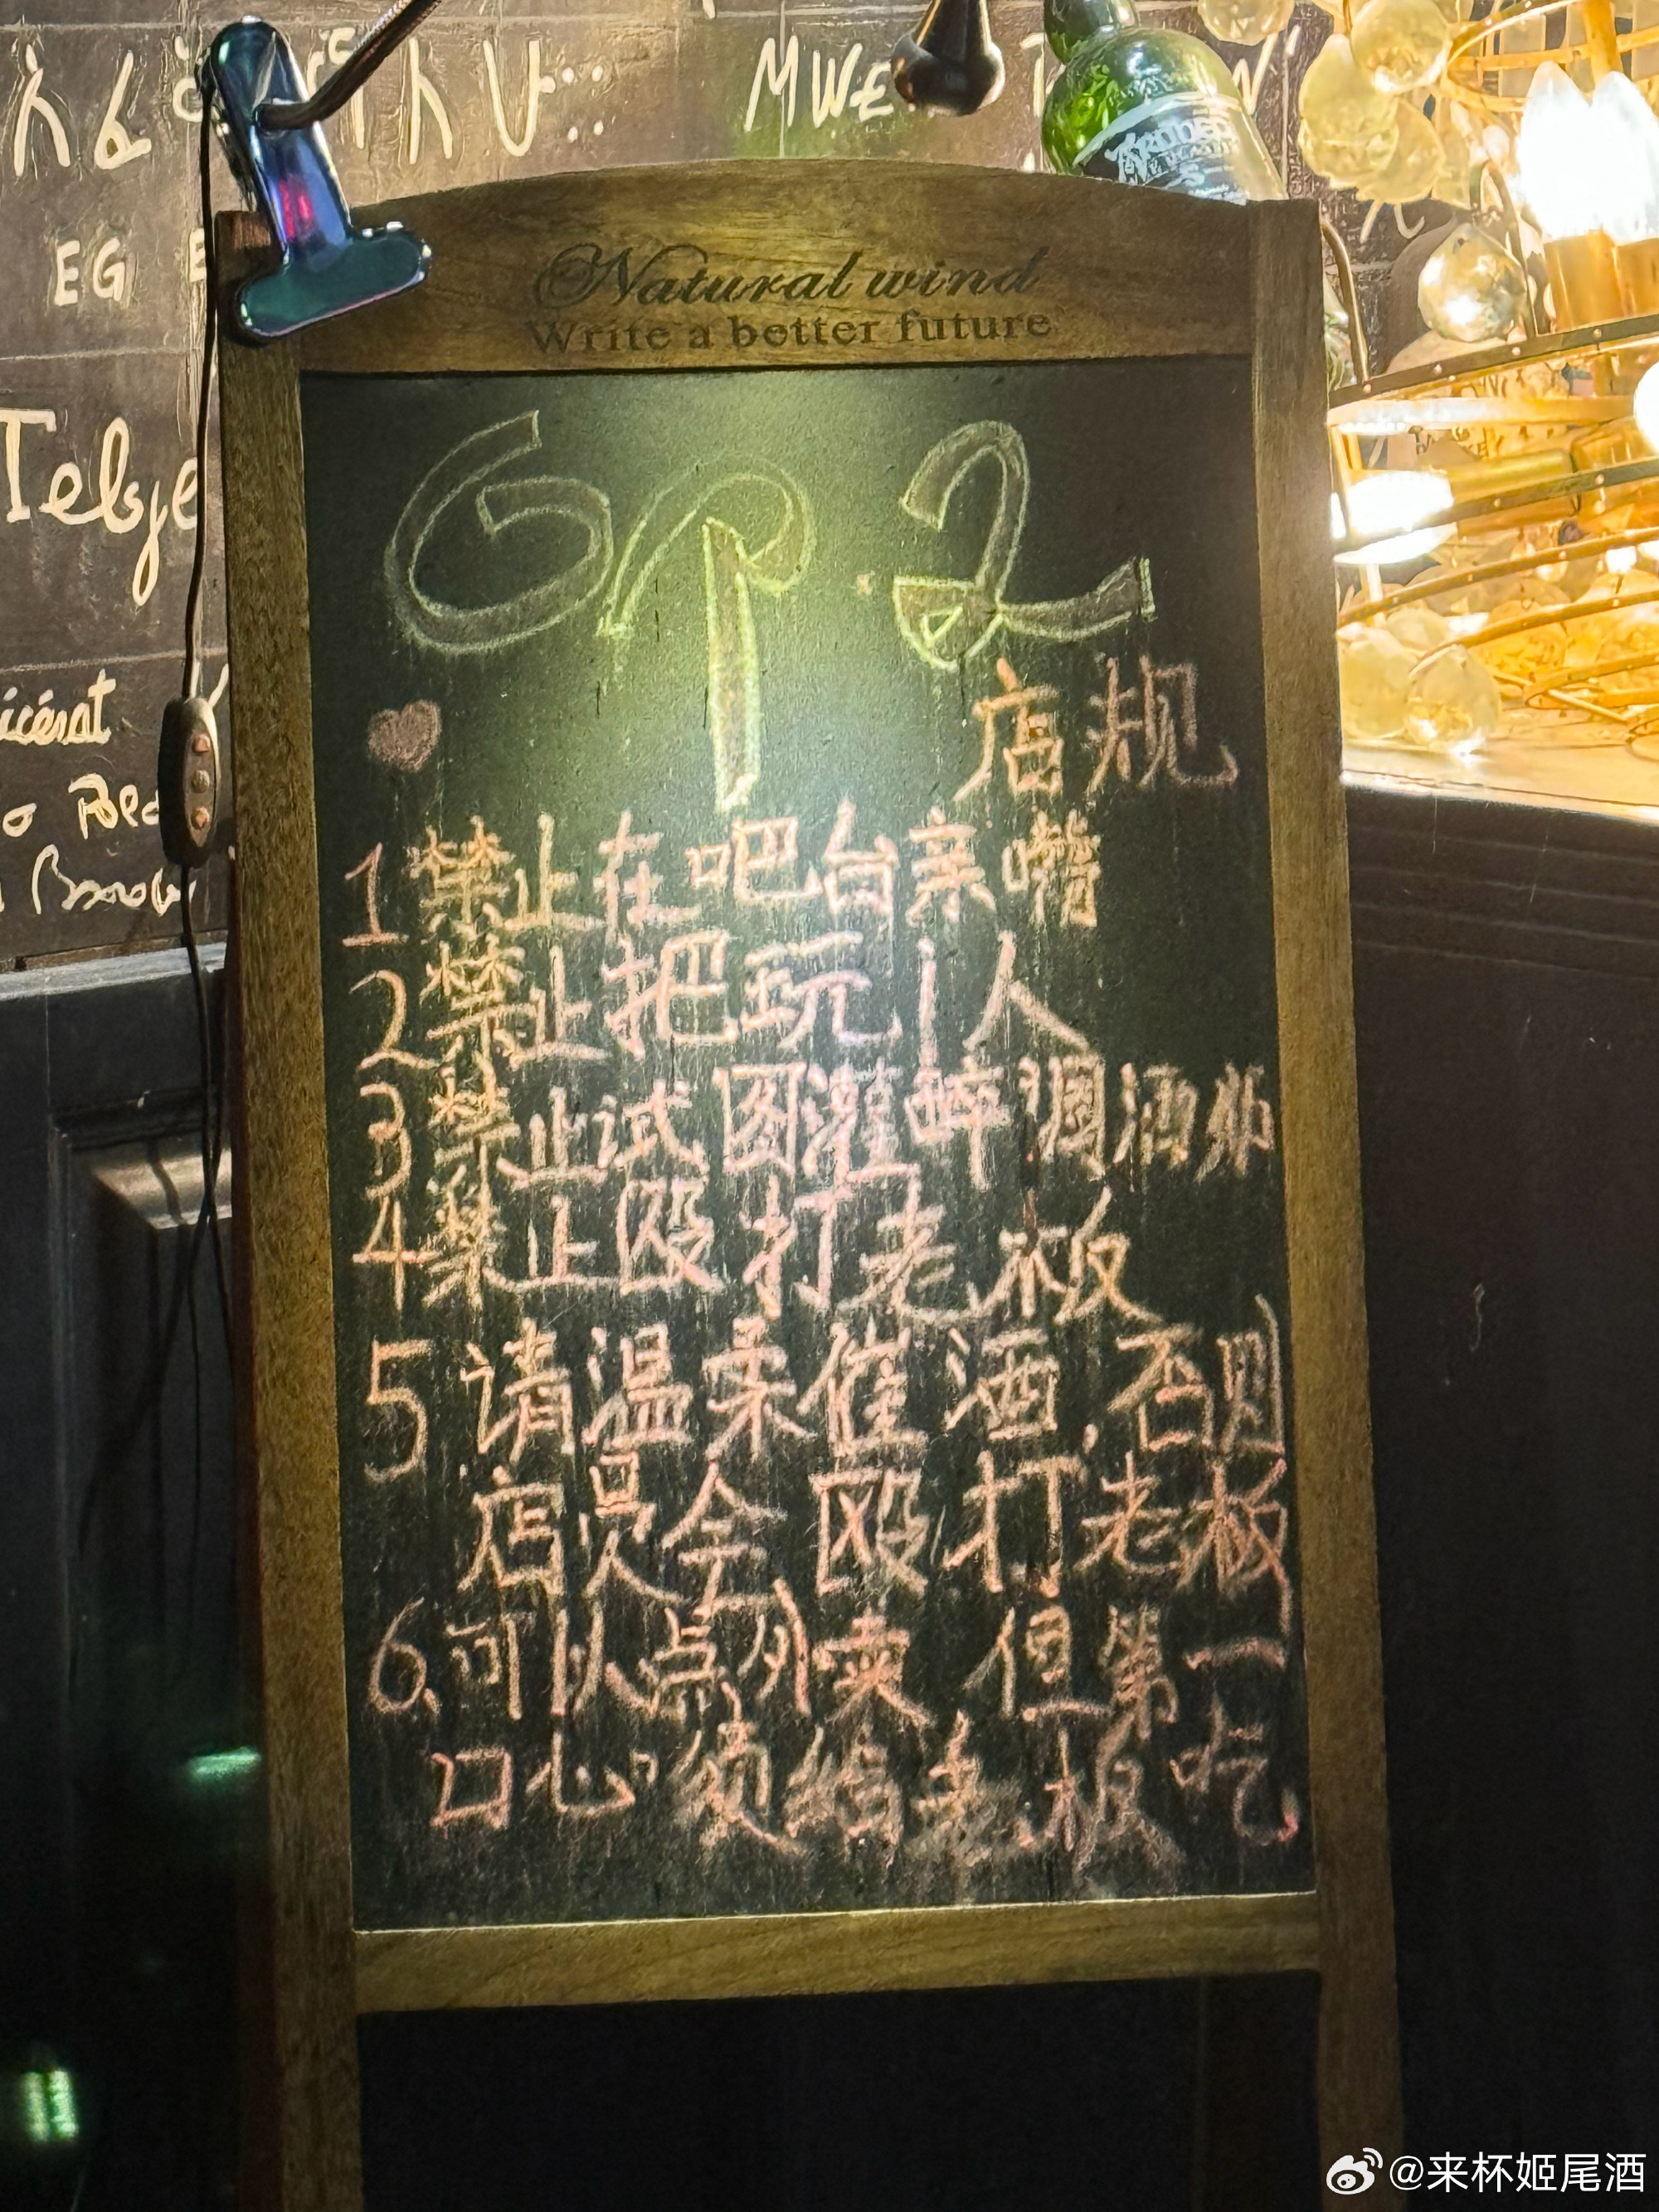 MWE
EG
Natural wind
Write a better future
Telje
GP.2
店规
1 禁止在吧台亲嘴
2 禁止把玩1人
3 禁止试图灌醉调酒师
4 禁止殴打老板
5 请温柔催酒,否则
店员会殴打老板
6.可以点外卖 但第一
口必须给老板吃
@来杯姬尾酒